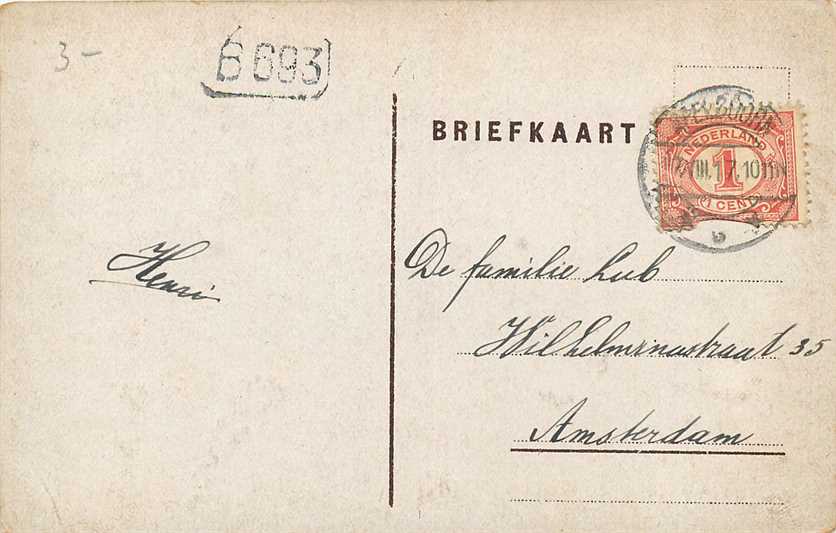 3-
B 693
BRIEFKAART
NEDERLAND
1
1 CENT
VIII.17.10
Henri
De familie Lub
Wilhelminastraat 35
Amsterdam